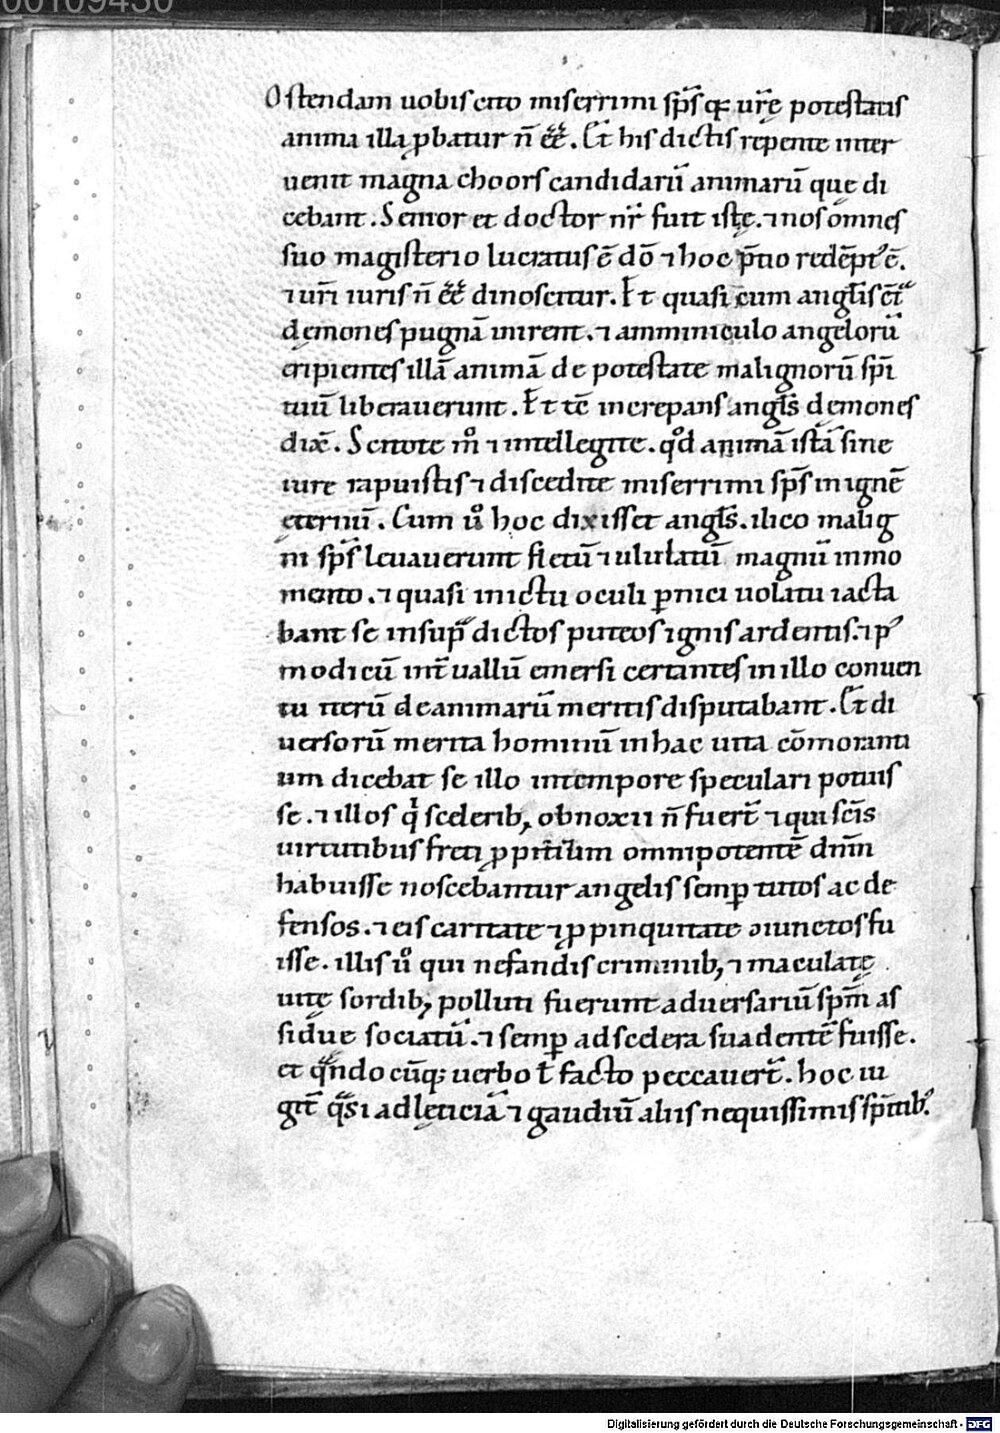 00109430
Ostendam uobis cito miserrimi sp̄s qꝫ ur̄ę potestatis
anima illa ꝓbatur n̄ ee͛. Et his dictis repente inter
uenit magna choors candidarū animarū quę di
cebant. Senior et doctor nr̄ fuit istę. ⁊ nos omnes
suo magisterio lucratus ē dō ⁊ hoc p̄tio redēpt᾽ ē.
⁊ uri iuris n̄ ee͛ dinoscitur. Et quasi cum angl̄is cͭᵃ
dęmones pugnā inirent. ⁊ amminiculo angelorū
eripientes illā animā de potestate malignorū spi
tuū liberauerunt. Et tē increpans angl̄s dęmones
dix̄. Scitote m̊ ⁊ intellegite. qd̊ animā istā sine
iure rapuistis ⁊ discedite miserrimi sp̄s in ignē
ęternū. Cum ů hoc dixisset angl̄s. ilico malig
ni sp̄s leuauerunt fletū ⁊ ululatū magnū in mo
mento. ⁊ quasi in ictu oculi ꝑnici uolatu iacta
bant se in supᵃdictos puteos ignis ardentis. ⁊ p᾽
modicū int̄uallū emersi certantes in illo conuen
tu iterū de animarū meritis disputabant. Et di
uersorū merita hominū in hac uita cōmoranti
um dicebat se illo in tempore speculari potuis
se. ⁊ illos qͥ sceleribꝫ obnoxii n̄ fuer̄t ⁊ qui sc̄is
uirtutibus freti ꝓpitium omnipotentē dnm̄
habuisse noscebantur angelis semꝑ tutos ac de
fensos. ⁊ eis caritate ⁊ ꝓpinquitate ɔiunctos fu
isse. illis ů qui nefandis criminibꝫ ⁊ maculatę
uitę sordibꝫ polluti fuerunt aduersariū sp̄m as
sidue sociatū. ⁊ semꝑ ad scelera suadentē fuisse.
et qᵃndo cūqꝫ uerbo ł facto peccauer̄t. hoc iu
git̄ qᵃsi ad lęticiā ⁊ gaudiū aliis nequissimis sp̄itib᾽.
Digitalisierung gefördert durch die Deutsche Forschungsgemeinschaft - DFG